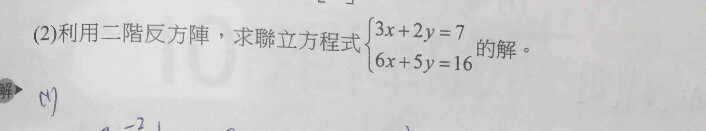 (2)利用二階反方陣，求聯立方程式{3x+2y=7
6x+5y=16 的解。
解
(1)
-2